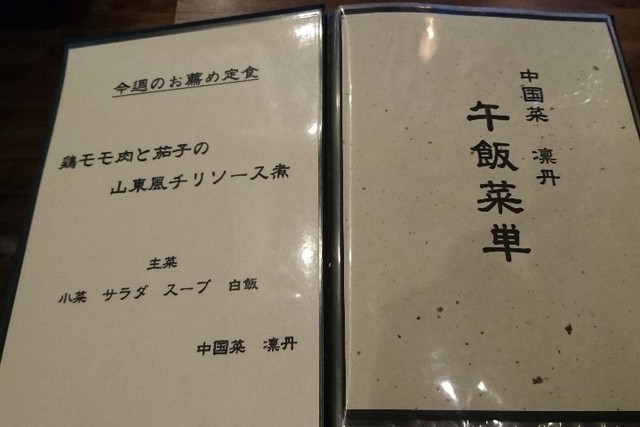 今週のお薦め定食
鶏モモ肉と茄子の
山東風チリソース煮
主菜
小菜 サラダ スープ 白飯
中国菜 凛丹
中国菜 凛丹
午飯菜単